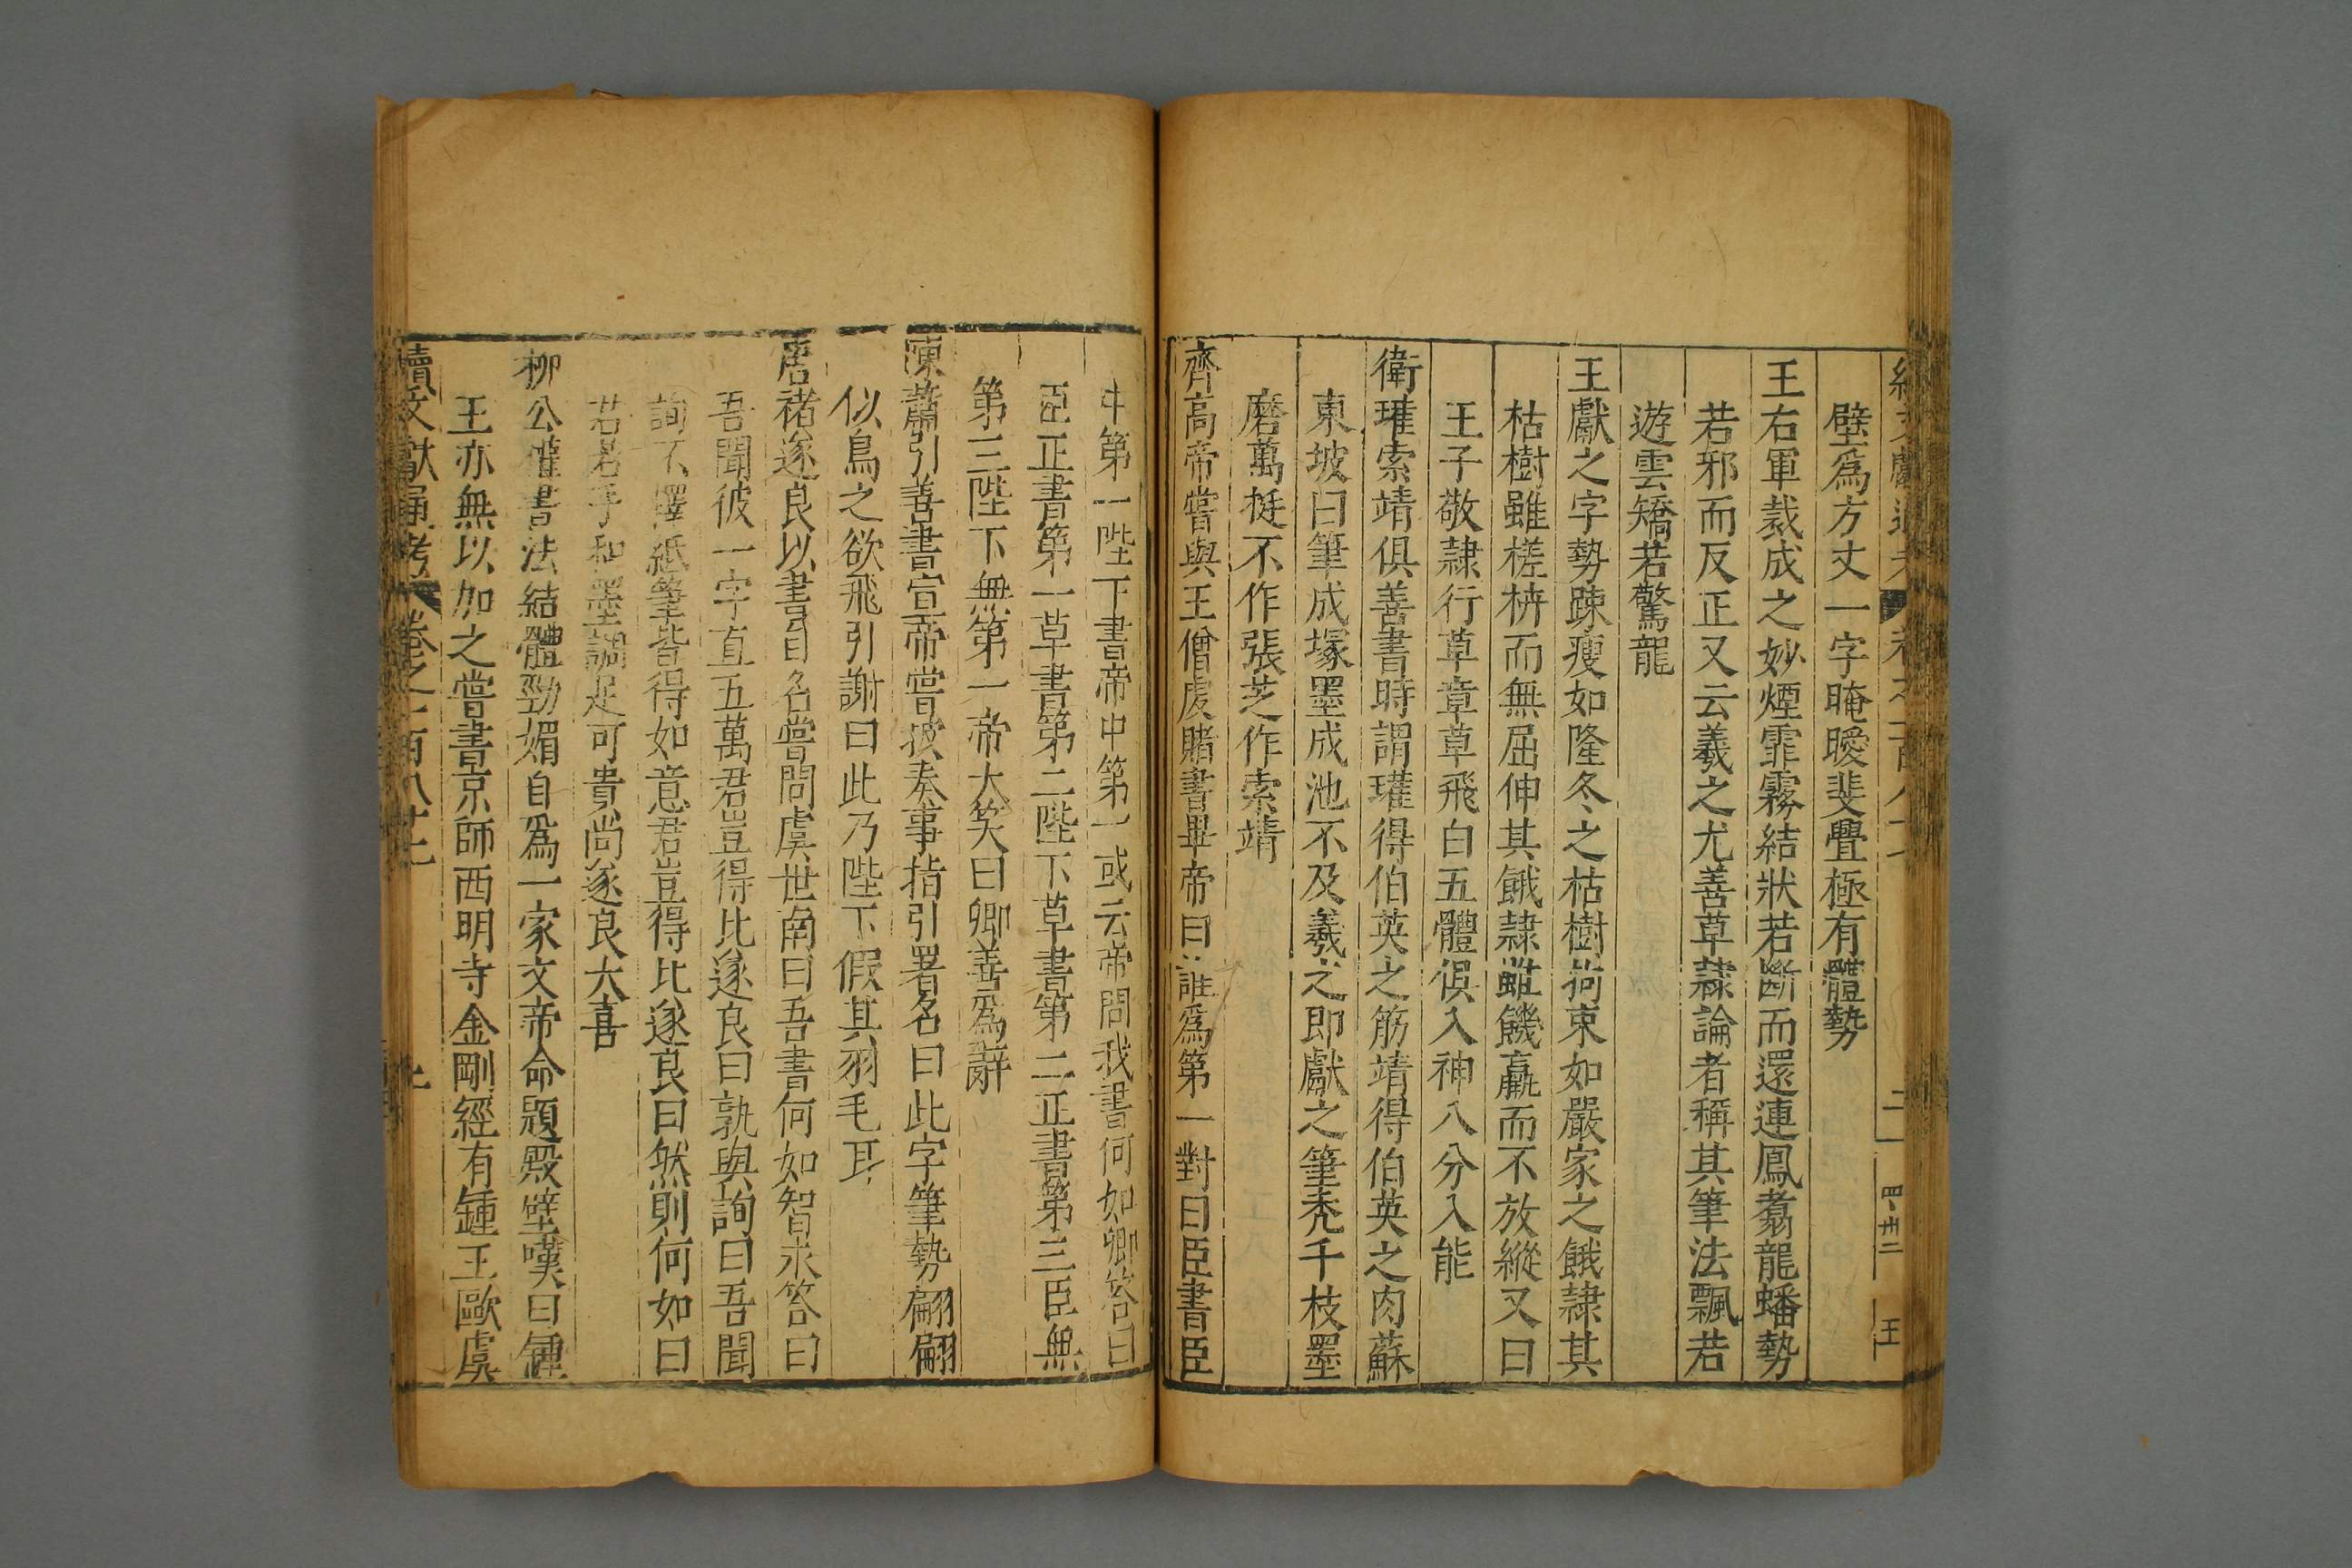 壁爲方丈一字晻曖斐亹極有體勢
王右軍裁成之妙煙霏霧結狀若斷而還連鳳翥龍蟠勢
若邪而反正又云羲之尤善草隸論者稱其筆法飄若
遊雲矯若驚龍
王獻之字勢踈瘦如隆冬之枯樹拘束如嚴家之餓隸其
枯樹雖槎枿而無屈伸其餓隸雖饑羸而不放縱又曰
王子敬隸行草章草飛白五體俱入神八分入能
衛瓘索靖俱善書時謂瓘得伯英之筋靖得伯英之肉蘇
東坡曰筆成塚墨成池不及羲之即獻之筆秃千枝墨
磨萬挺不作張芝作索靖
齊高帝嘗與王僧虔賭書畢帝曰誰爲第一對曰臣書臣
中第一陛下書帝中第一或云帝問我書何如卿答曰
臣正書第一草書第二陛下草書第二正書第三臣無
第三陛下無第一帝大笑曰卿善爲辭
陳蕭引善書宣帝嘗披奏事指引署名曰此字筆勢翩翩
似鳥之欲飛引謝曰此乃陛下假其羽毛耳
唐褚遂良以書自名嘗問虞世南曰吾書何如智永答曰
吾聞彼一字直五萬君豈得比遂良曰孰與詢曰吾聞
詢不擇紙筆皆得如意君豈得比遂良曰然則何如曰
若君手和墨調足可貴尚遂良大喜
柳公權書法結體勁媚自爲一家文帝命題殿壁嘆曰鍾
王亦無以加之嘗書京師西明寺金剛經有鍾王歐虞
續文獻通考 卷之一百八十七